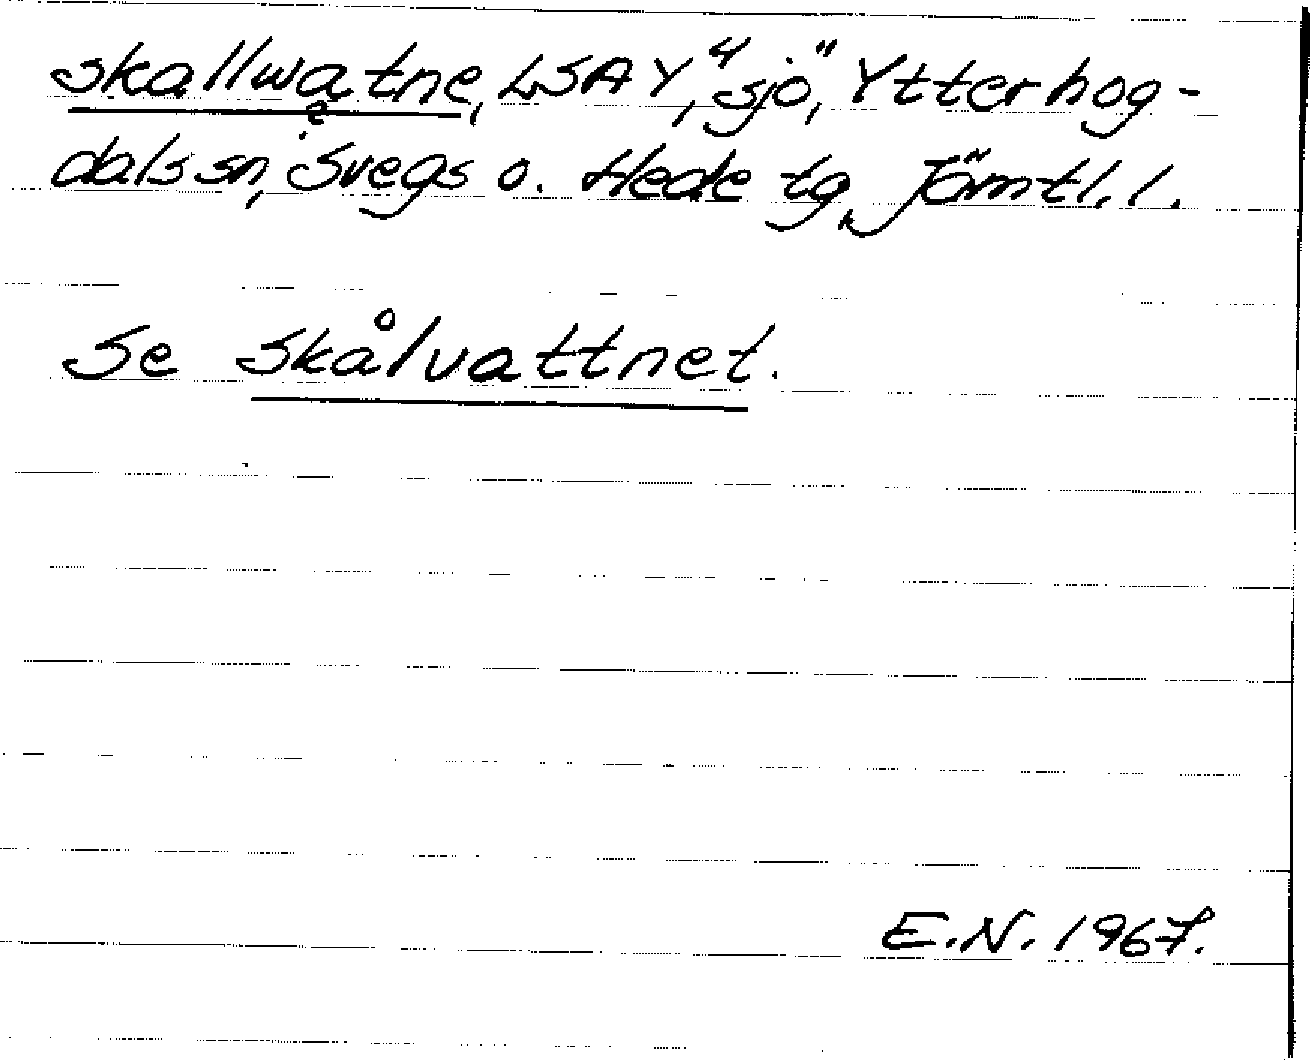 skallwatne, LSA Y, "sjö", Ytterhog-
dals sn, Svegs o. Hede tg, Jämtl. l.
Se Skålvattnet.
E.N. 1967.